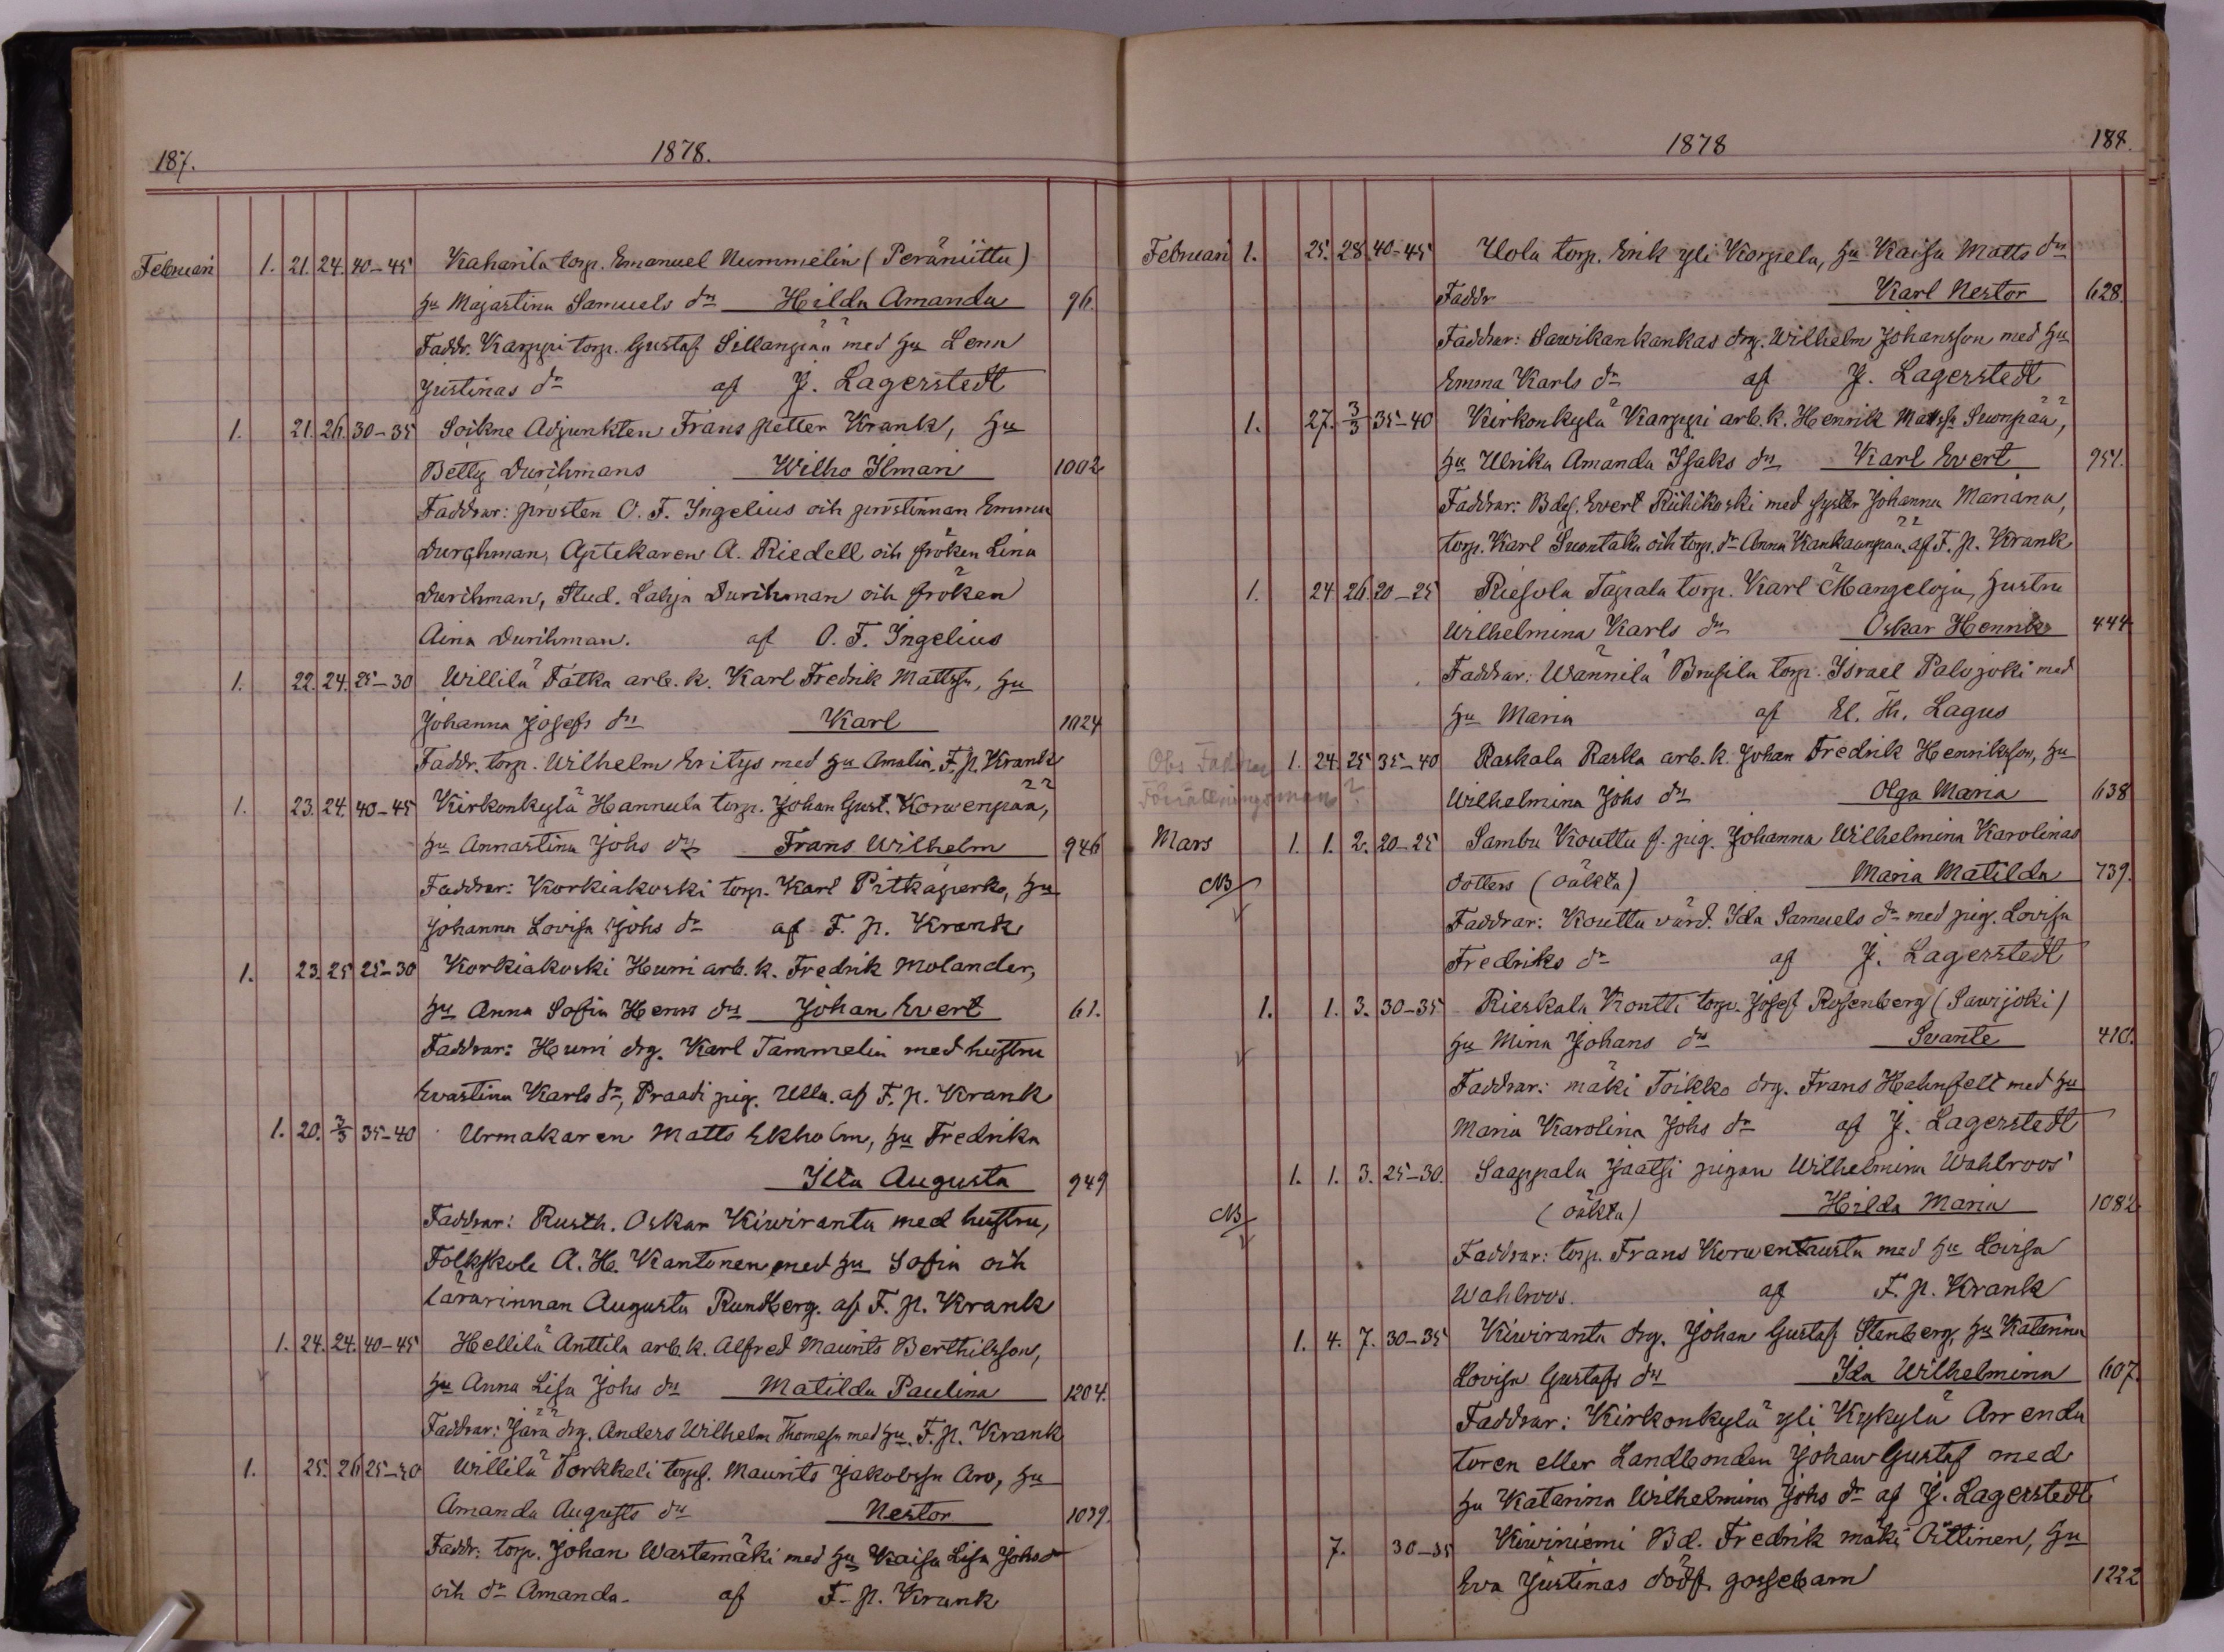 187.
1878.
Februari 1. 21. 24. 40-45 Kaharila torp. Emanuel Nummelin (Peräniittu)
hu Majastina Samuels drs Hilda Amanda 96.
Faddr. Karppi torp. Gustaf Sillanpää med hu Lena
Justinas dr af J. Lagerstedt
1. 21. 26. 30-35 Soikne Adjunkten Frans Petter Krank, hu
Betty Durchmans Wilho Ilmari 1002
Faddrar: prosten O. F. Ingelius och prostinnan Emma
Durchman, Aptekaren A. Riedell och fröken Lina
Durchman, Stud. Lahja Durchman och fröken
Aina Durchman. af O. F. Ingelius
1. 22. 24. 25-30 Willilä Tátka arb. k. Karl Fredrik Mattssn, hu
Johanna Josefs drs Karl 1024
Faddr. torp. Wilhelm Eritys med hu Amalia. F. P. Krank
1. 23. 24. 40-45 Kirkonkylä Hannula torp. Johan Gust. Korwenpää,
hu Annastina Johs drs Frans Wilhelm 946
Faddrar: Korkiakoski torp. Karl Pitkäperko, hu
Johanna Lovisa Johs dr af F. P. Krank
1. 23. 25 25-30 Korkiakoski Hurri arb. k. Fredrik Molander,
hu Anna Sofia Henrs drs Johan Evert 61.
Faddrar: Hurri drg. Karl Tammelin med hustru
Evastina Karls dr, Praadi pig. Ulla. af F. P. Krank
1. 20. 3/3 35-40 Urmakaren Matts Ekholm, hu Fredrika
Ilta Augusta 949
Faddrar: Rusth. Oskar Kiwiranta med hustru,
Folkskole A. H. Kantonen med hu Sofia och
lärarinnan Augusta Rundberg. af F. P. Krank
1. 24. 24. 40-45 Hellilä Anttila arb. k. Alfred Maurits Berthilsson,
hu Anna Lisa Johs drs Matilda Paulina 1204.
Faddrar: Jära drg. Anders Wilhelm Thomass med hu. F. P. Krank
1. 25. 26 25-30 Willilä Torkkeli torps. Maurits Jakobssn Aro, hu
Amanda Augusts drs Nestor 1039.
Faddr: torp. Johan Wastemäki med hu Kaisa Lisa Johs dr
och dr Amanda. af F. P. Krank
1878
188.
Februari 1. 25. 28. 40-45 Uola torp. Erik yli Korpela, hu Kaisa Matts drs
Faddr Karl Nestor 628.
Faddrar: Sawikankankas drg. Wilhelm Johansson med hu
Emma Karls dr af J. Lagerstedt
1. 27. 3/3 35-40 Kirkonkylä Karppi arb. k. Henrik Matssn Suonpää,
hu Ulrika Amanda Isaks drs Karl Evert 951.
Faddrar: Bdes. Evert Riihikoski med syster Johanna Mariana,
torp. Karl Suontaka och torp. dr Anna Kankaanpää. af F. P. Krank
1. 24. 26. 20-25 Riesola Tapala torp. Karl Mangeloja, hustru
Wilhelmina Karls dr Oskar Hennik 444
Faddrar: Wännilä Brusila torp. Israel Palojoki med
hu Maria af El. Th. Lagus
Obs Faddrar 1. 24. 25 35-40 Raskala Raska arb. k. Johan Fredrik Henriksson, hu
Förrättningsman? Wilhelmina Johs drs Olga Maria 638
Mars 1. 1. 2. 20-25 Sambu Kouttu f. pig. Johanna Wilhelmina Karolinas
NB dotters (oäkta) Maria Matilda 739.
Faddrar: Kouttu värd. Ida Samuels dr med pig. Lovisa
Fredriks dr af J. Lagerstedt
1. 1. 3. 30-35 Rieskala Kontti torp. Josef Rosenberg (Sawijoki)
hu Mina Johans drs Svante 410.
Faddrar: mäki Toikko drg. Frans Hahnfelt med hu
Maria Karolina Johs dr af J. Lagerstedt
1. 1. 3. 25-30. Saappala Jaatsi pigan Wilhelmina Wahlroos'
NB (oäkta) Hilda Maria 1082
Faddrar: torp. Frans Korwentausta med hu Lovisa
Wahlroos. af F. P. Krank
1. 4. 7. 30-35 Kiwiranta drg. Johan Gustaf Stenberg, hu Katarina
Lovisa Gustafs drs Ida Wilhelmina 607.
Faddrar: Kirkonkylä yli Kykylä Arrenda
toren eller Landbonden Johan Gustaf med
hu Katarina Wilhelmina Johs dr af J. Lagerstedt
7. 30-35 Kiwiniemi Bd. Fredrik mäki Äittinen, hu
Eva Justinas dödf. gossebarn 1222